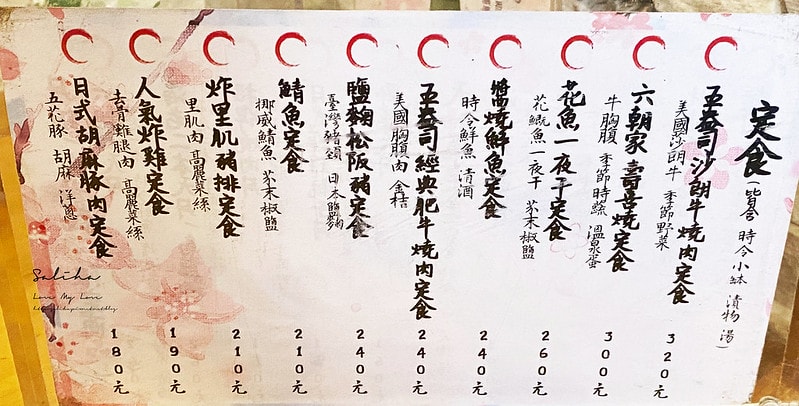 定食(皆含 時令小缽 漬物 湯)
五叁司沙朗牛燒肉定食
美國沙朗牛 季節野菜
320元
六朝家壽喜燒定食
牛胸腹 季節時蔬 溫泉蛋
300元
花魚一夜干定食
花鯽魚一夜干 芥末椒鹽
260元
醬燒鮮魚定食
時令鮮魚 清酒
240元
五叁司經典肥牛燒肉定食
美國胸腹肉 金桔
240元
鹽麴松阪豬定食
臺灣豬頸 日本鹽麴
240元
鯖魚定食
挪威鯖魚 芥末椒鹽
210元
炸里肌豬排定食
里肌肉 高麗菜絲
210元
人氣炸雞定食
去骨雞腿肉 高麗菜絲
190元
日式胡麻豚肉定食
五花豚 胡麻 洋蔥
180元
Saliha
Love My Love